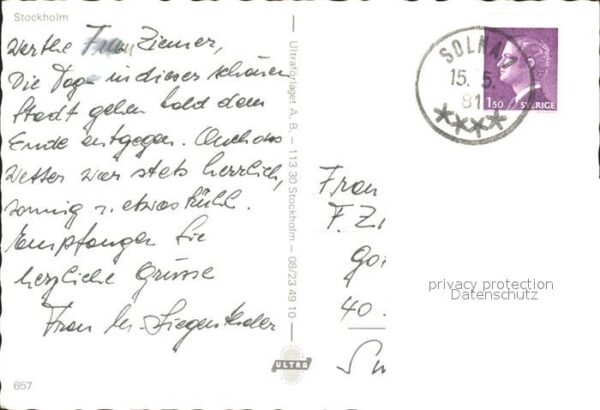 Stockholm
Werthe Frau Ziemer,
Die Tage in dieser schönen
Stadt gehen bald dem
Ende entgegen. Auch das
Wetter war stets herrlich,
sonnig u. etwas kühl.
Empfangen Sie
herzliche Grüsse
Frau
657
Ultraförlaget A. B. – 113 30 Stockholm – 08/23 49 10
ULTRA
SOLNA
15. 5.
81
1.50 SVERIGE
Frau
F. Zi
40.
privacy protection
Datenschutz